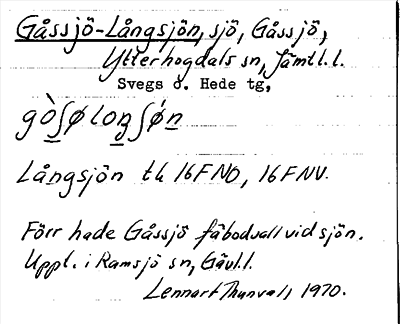 Gåssjö-Långsjön, sjö, Gåssjö,
Ytterhogdals sn, Jämtl.l.
Svegs o. Hede tg,
gòʃøloŋʃǿn
Långsjön tk 16F NO, 16F NV.
Förr hade Gåssjö fäbodvall vid sjön.
Uppt. i Ramsjö sn, Gävl.l.
Lennart Thunvall 1970.